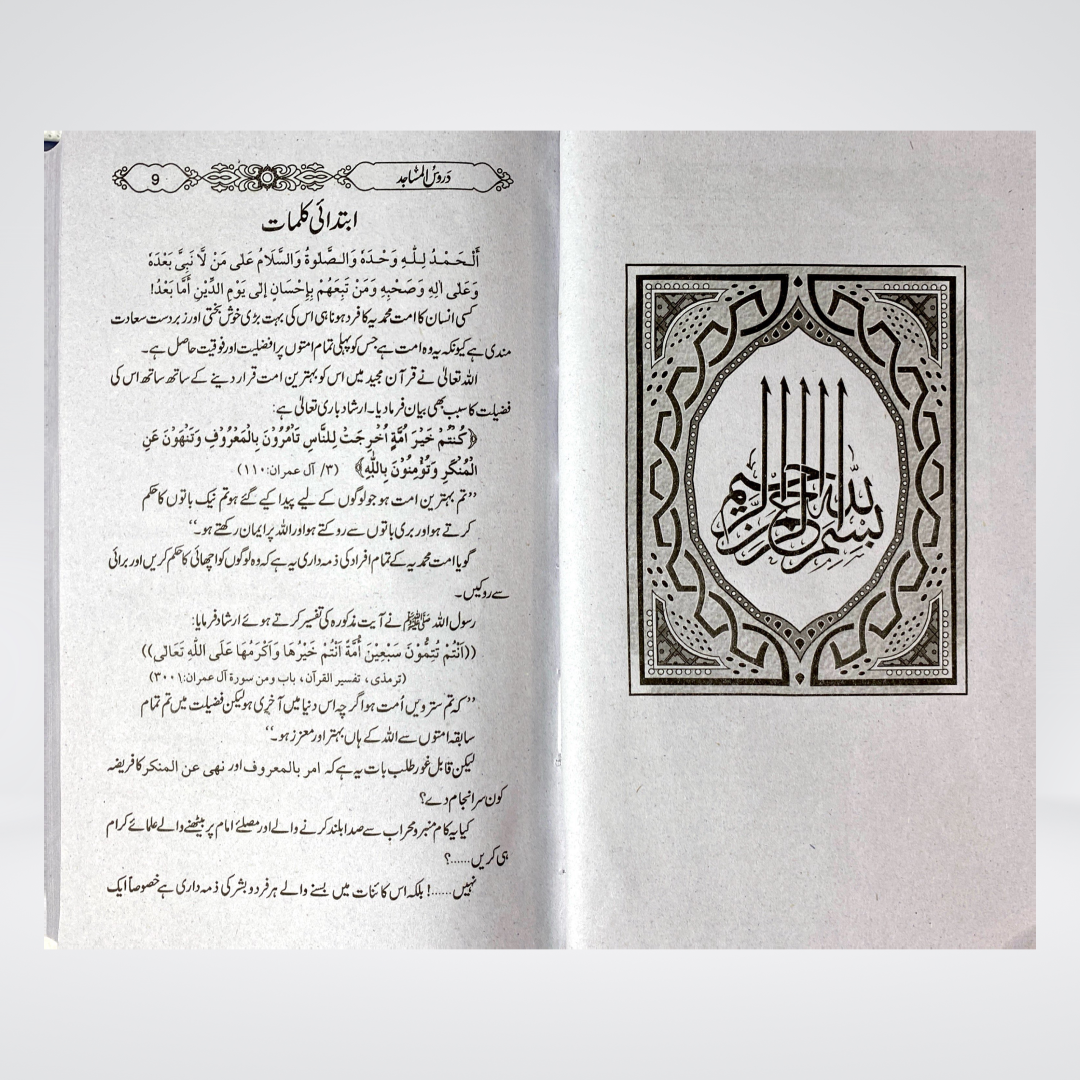 بسم الله الرحمن الرحيم
دروس المساجد
9
ابتدائی کلمات
أَلْحَمْدُ لِلّٰهِ وَحْدَهٗ وَالصَّلٰوةُ وَالسَّلَامُ عَلٰى مَنْ لَّا نَبِىَّ بَعْدَهٗ
وَعَلٰى اٰلِهٖ وَصَحْبِهٖ وَمَنْ تَبِعَهُمْ بِإِحْسَانٍ إِلٰى يَوْمِ الدِّيْنِ أَمَّا بَعْدُ!
کسی انسان کا امت محمدیہ کا فرد ہونا ہی اس کی بہت بڑی خوش بختی اور زبردست سعادت
مندی ہے کیونکہ یہ وہ امت ہے جس کو پہلی تمام امتوں پر افضلیت اور فوقیت حاصل ہے۔
اللہ تعالیٰ نے قرآن مجید میں اس کو بہترین امت قرار دینے کے ساتھ ساتھ اس کی
فضیلت کا سبب بھی بیان فرما دیا۔ ارشاد باری تعالیٰ ہے:
﴿كُنْتُمْ خَيْرَ اُمَّةٍ اُخْرِجَتْ لِلنَّاسِ تَاْمُرُوْنَ بِالْمَعْرُوْفِ وَتَنْهَوْنَ عَنِ
الْمُنْكَرِ وَتُؤْمِنُوْنَ بِاللّٰهِ﴾ (۳/ آل عمران: ۱۱۰)
’’تم بہترین امت ہو جو لوگوں کے لیے پیدا کیے گئے ہو تم نیک باتوں کا حکم
کرتے ہو اور بری باتوں سے روکتے ہو اور اللہ پر ایمان رکھتے ہو۔‘‘
گویا امت محمدیہ کے تمام افراد کی ذمہ داری یہ ہے کہ وہ لوگوں کو اچھائی کا حکم کریں اور برائی
سے روکیں۔
رسول اللہ ﷺ نے آیت مذکورہ کی تفسیر کرتے ہوئے ارشاد فرمایا:
((اَنْتُمْ تُتِمُّوْنَ سَبْعِيْنَ أُمَّةً اَنْتُمْ خَيْرُهَا وَاَكْرَمُهَا عَلَى اللّٰهِ تَعَالٰى))
(ترمذی، تفسیر القرآن، باب ومن سورة آل عمران: ۳۰۰۱)
’’کہ تم سترویں اُمت ہو اگرچہ اس دنیا میں آخری ہو لیکن فضیلت میں تم تمام
سابقہ امتوں سے اللہ کے ہاں بہتر اور معزز ہو۔‘‘
لیکن قابل غور طلب بات یہ ہے کہ امر بالمعروف اور نھی عن المنکر کا فریضہ
کون سرانجام دے؟
کیا یہ کام منبر و محراب سے صدا بلند کرنے والے اور مصلے امام پر بیٹھنے والے علمائے کرام
ہی کریں......؟
نہیں......! بلکہ اس کائنات میں بسنے والے ہر فرد و بشر کی ذمہ داری ہے خصوصاً ایک